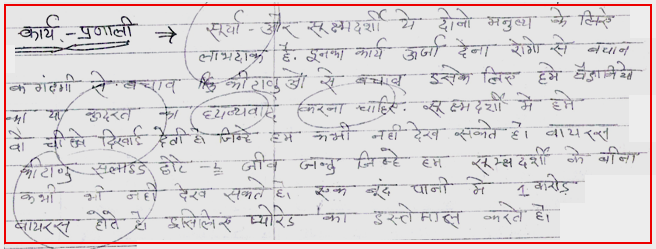 कार्य - प्रणाली → सूर्या - और सूक्ष्मदर्शी ये दोनो मनुष्य के लिए
लाभदाक है. इनका कार्य ऊर्जा देना रोगो से बचान
व गंदगी से बचाव कि कीटाणु ओ से बचाव इसके लिए हमे वैज्ञानिको
का या कुदरत का धन्यवाद करना चाहिए. सूक्ष्मदर्शी में हमे
वो चीजे दिखाई देती है जिन्हे हम कभी नही देख सकते है। वायरस
कीटाणु सलाइड छोटे - 2 जीव जन्तु जिन्हे हम सूक्ष्मदर्शी के बीना
कभी भी नही देख सकते है। एक बूंद पानी मे 1 करोड़
वायरस होते है इसिलिए प्योरेड का इस्तेमाल करते है।